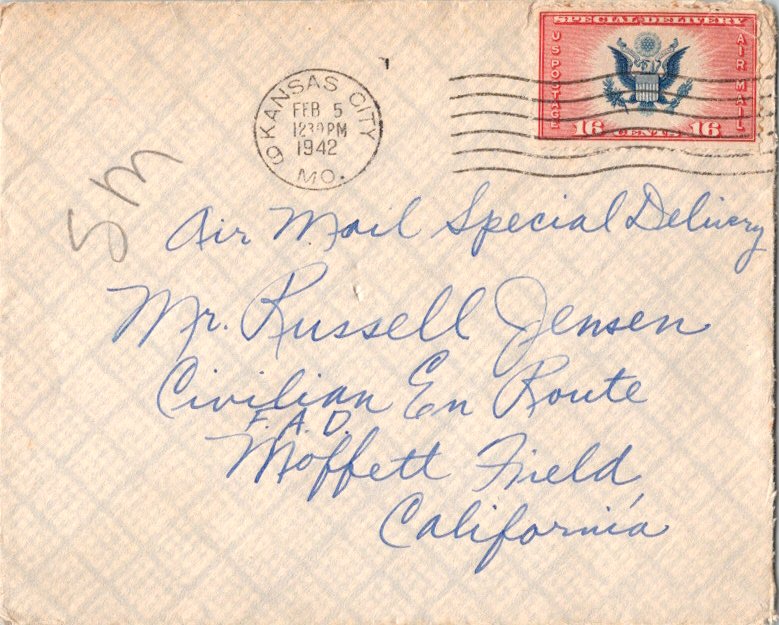 SPECIAL DELIVERY
U S POSTAGE
AIR MAIL
16 CENTS 16
KANSAS CITY
FEB 5
1230 PM
1942
MO.
5M
Air Mail Special Delivery
Mr. Russell Jensen
Civilian En Route
F.A.D.
Moffett Field,
California